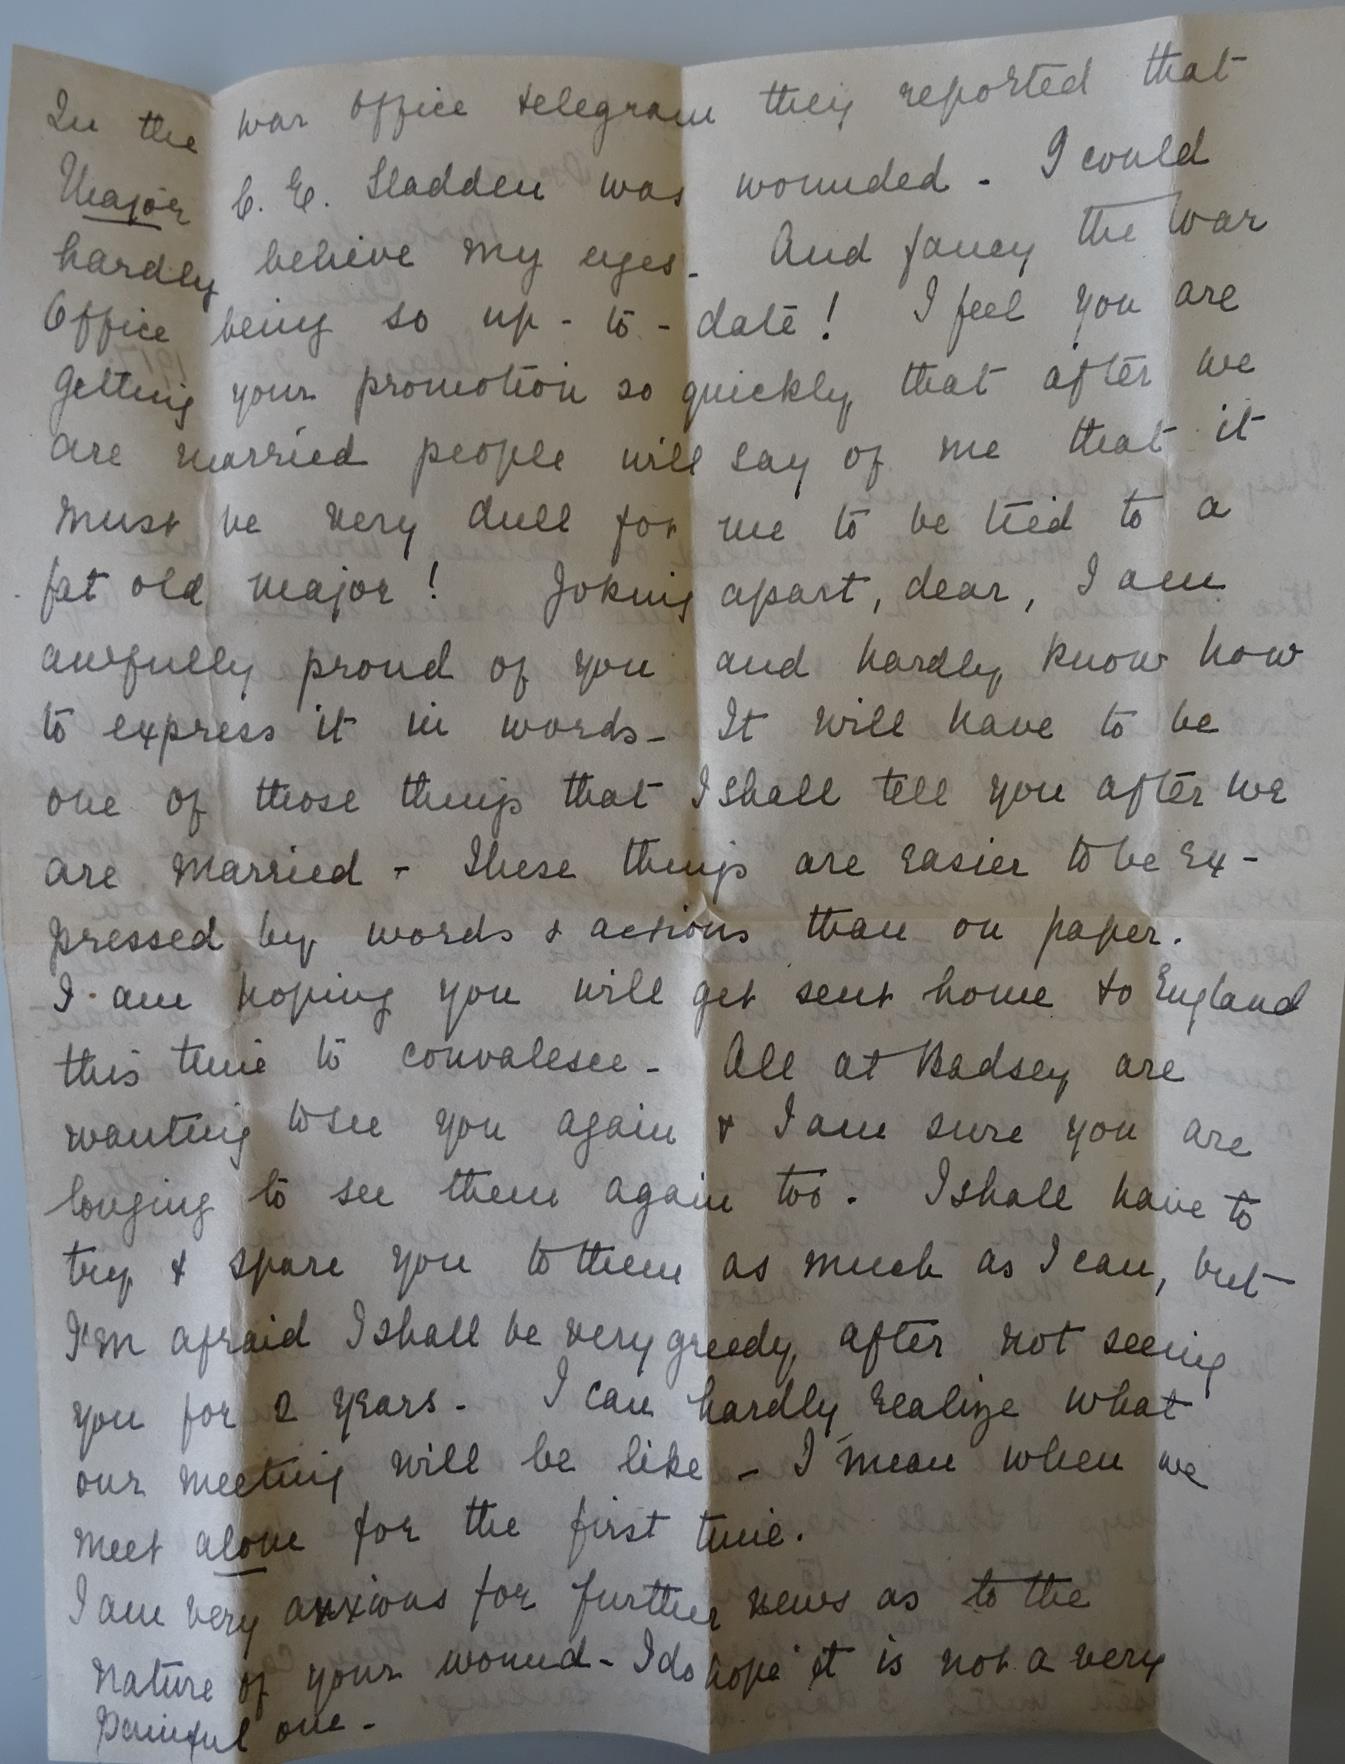 In the war office telegram they reported that
Major C. E. Sladden was wounded - I could
hardly believe my eyes - And fancy the War
Office being so up-to-date! I feel you are
getting your promotion so quickly that after we
are married people will say of me that it
must be very dull for me to be tied to a
fat old major! Joking apart, dear, I am
awfully proud of you and hardly know how
to express it in words - It will have to be
one of those things that I shall tell you after we
are married - These things are easier to be ex-
pressed by words & actions than on paper.
I am hoping you will get sent home to England
this time to convalesce - All at Badsey are
wanting to see you again & I am sure you are
longing to see them again too. I shall have to
try & spare you to them as much as I can, but
I'm afraid I shall be very greedy, after not seeing
you for 2 years - I can hardly realize what
our meeting will be like - I mean when we
meet alone for the first time.
I am very anxious for further news as to the
nature of your wound - I do hope it is not a very
painful one -